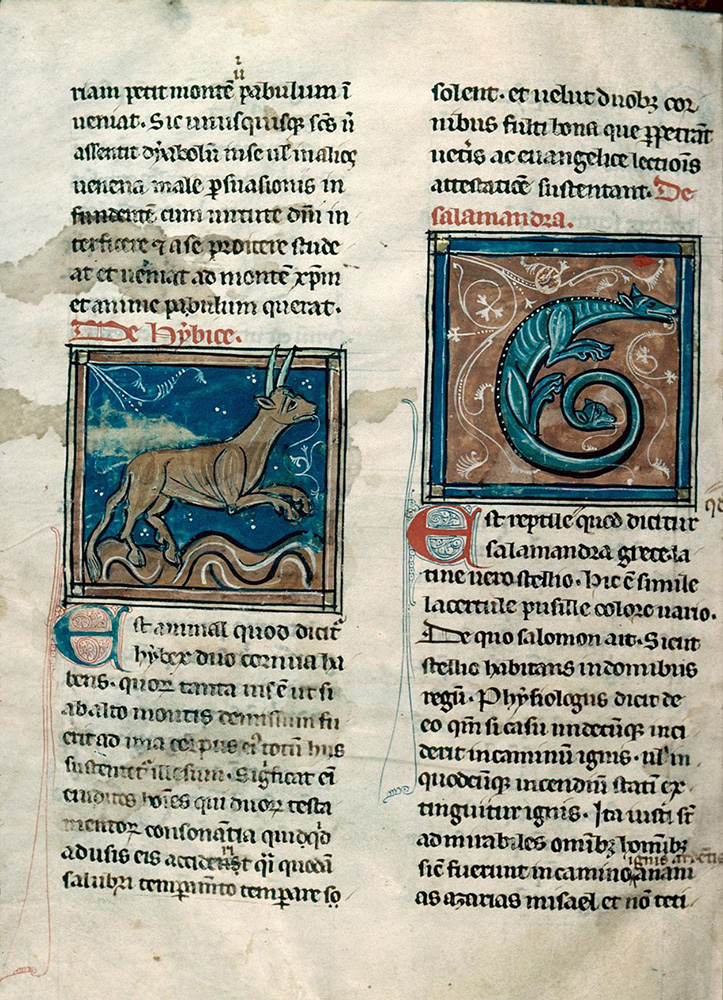 riam petit montē pabulum ī
ueniat. Sic unusquisq; scs̄ ū
assentit dyabolū in se ul' malicꝫ
uenena male ꝑsuasionis in
fundentē cum uirtute dn̄i in
terficere ⁊ a se proicere stude
at et ueniat ad montē xp̄m
et anime pabulum querat.
De hybice.
Est animal quod dicit᷑
hybex duo cornua ha
bens. quoꝝ tanta uis ē ut si
ab alto montis demissum fu
erit ad ima corpus ei᷒ totū hiis
sustentet᷑ illesum. Sigficat eī
eruditos hoīes qui duoꝝ testa
mentoꝝ consonātia quidq̇d
aduersis eis acciderit q̄i quodā
salubri temꝑamīto temperare so
solent. et uelut duobꝫ cor
nibus fulti bona que ꝑpetrāt
uetīs ac euangelice lectionīs
attestatiōe sustentant. De
salamandra.
Est reptile quod dicitur
salamandra grece. la
tine uero stellio. hic ē simile
lacertule pusille colore uario.
De quo salomon ait. Sicut
stellio habitans in domibus
regū. Physiologus dicit de
eo qm̄ si casu undecūq; inci
derit in caminū ignis. ul' in
quodcūq; incendiū statī ex
tinguitur ignis. Ita iusti st̄
ad mirabiles omībꝫ homībꝫ
sic̄ fuerunt in camino ignis anani
as azarias misael et nō teti